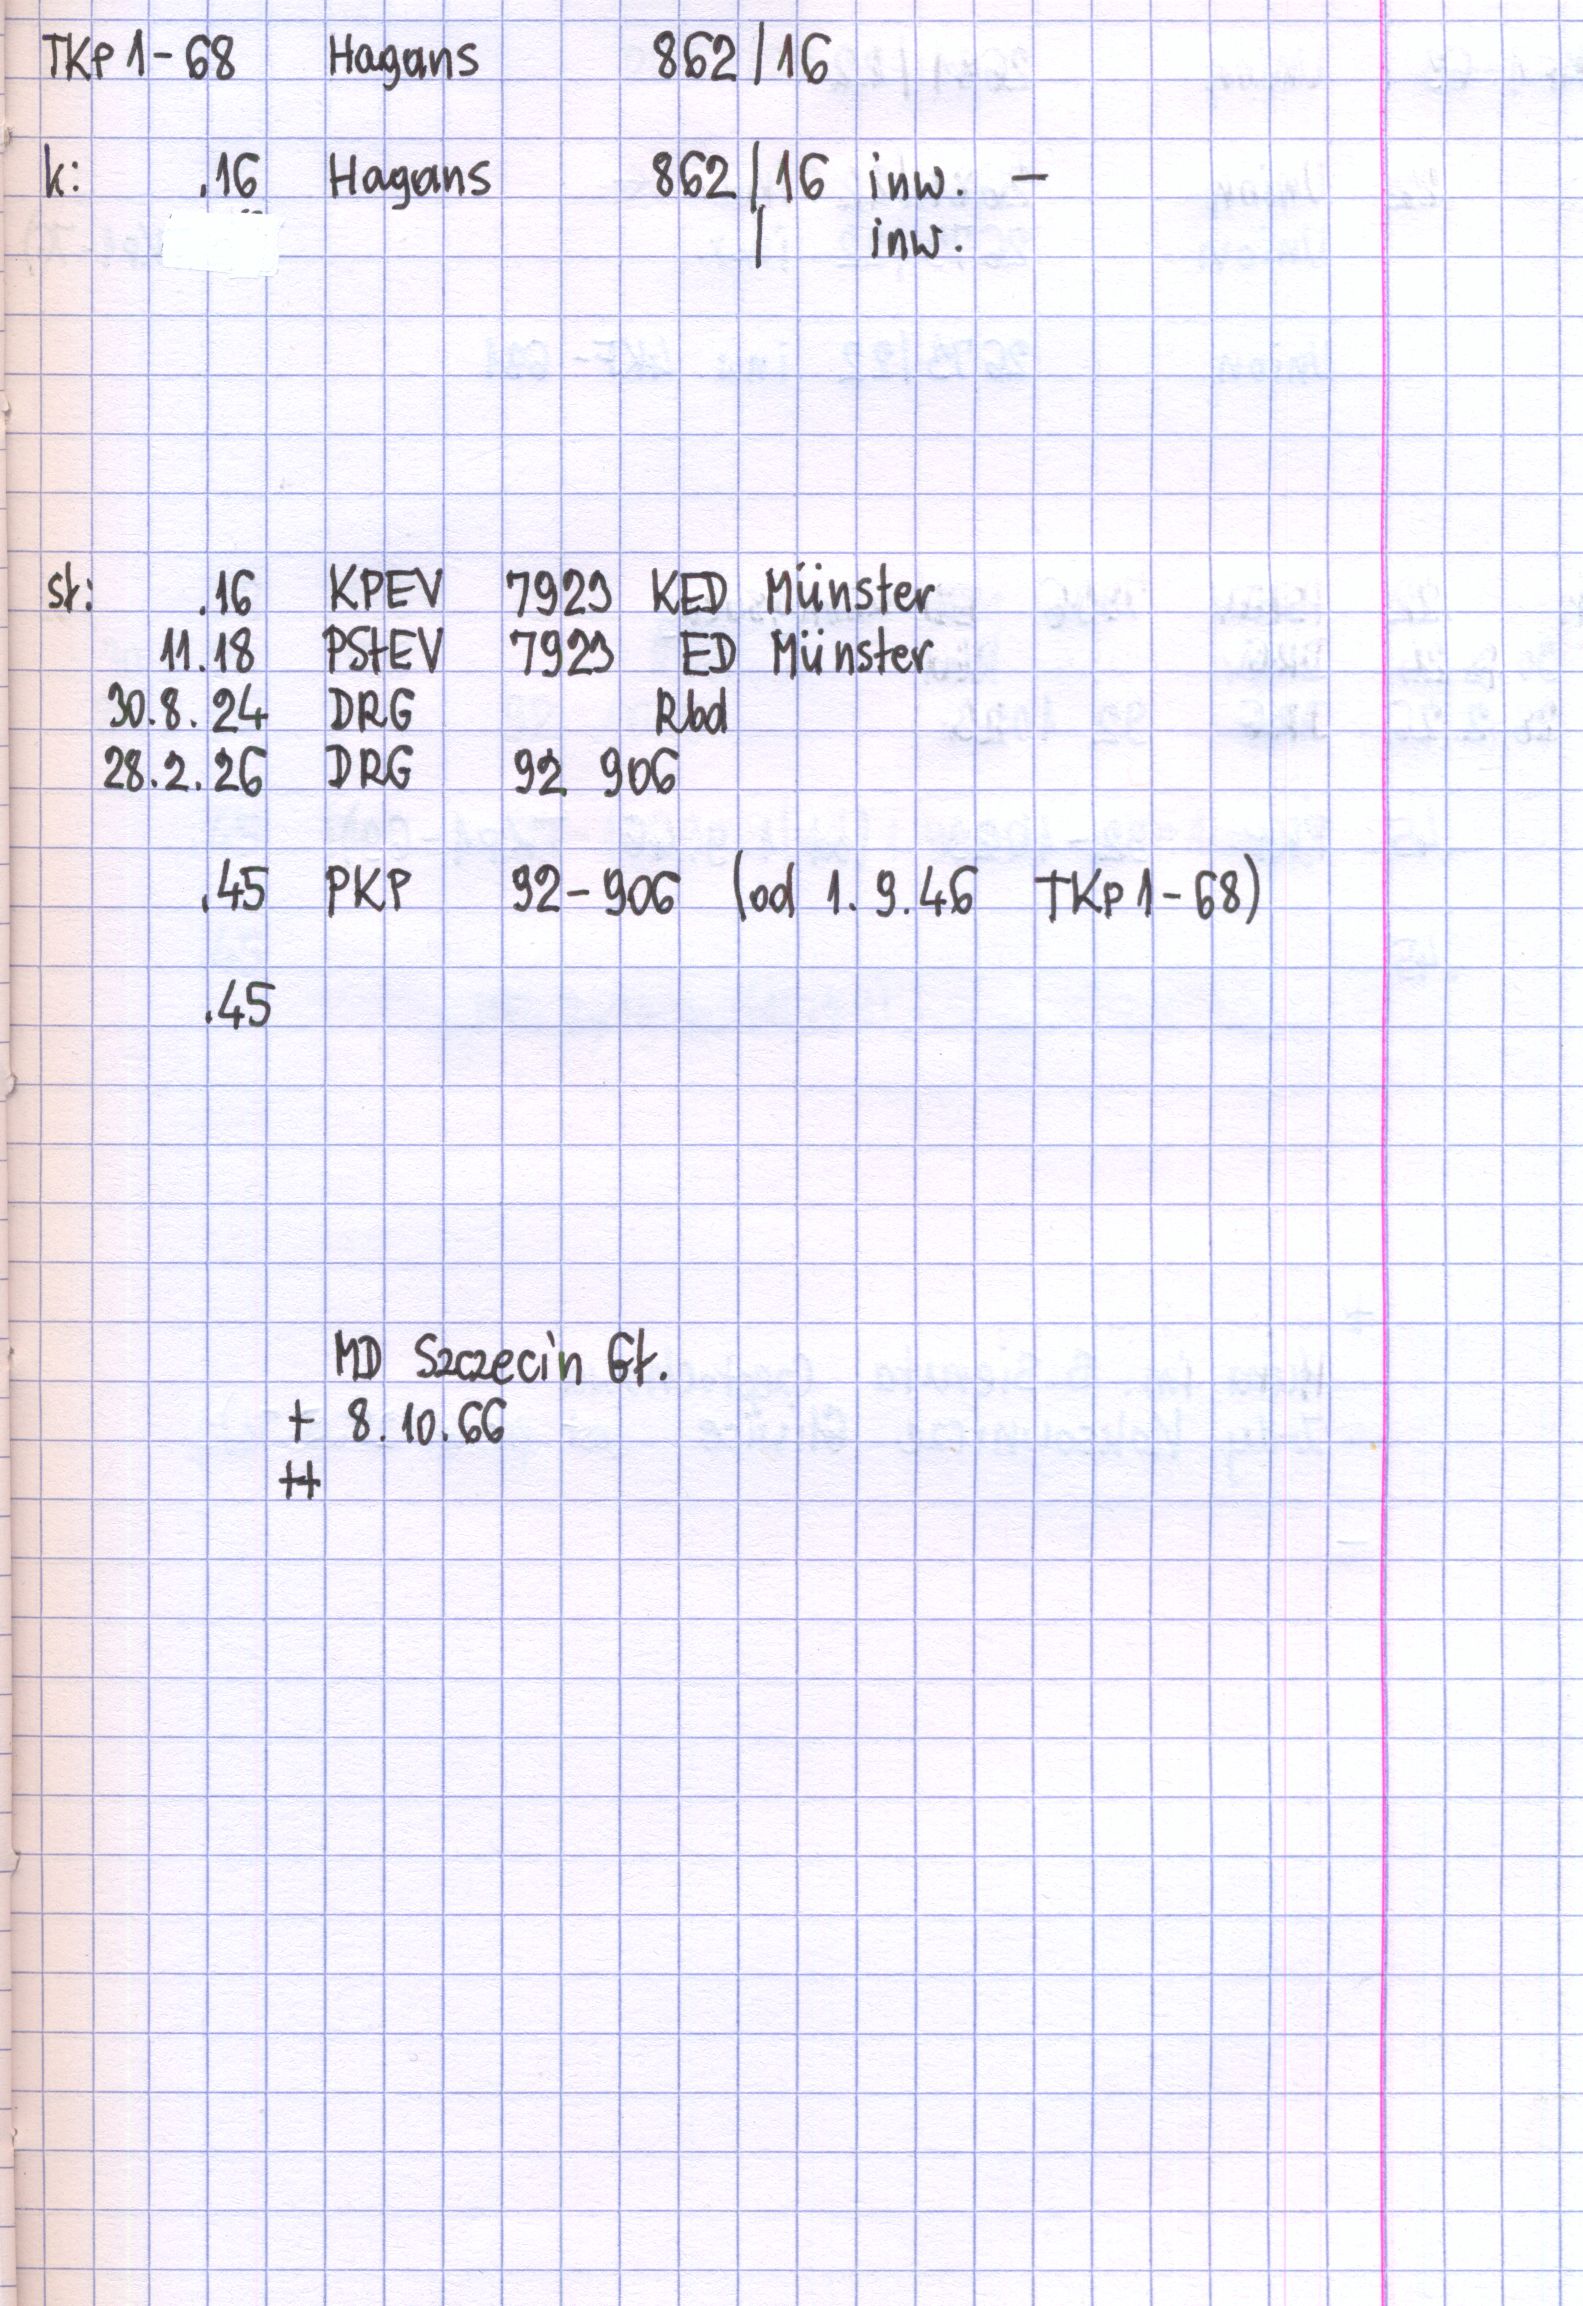 TKp 1-68 Hagans 862/16
k: .16 Hagans 862/16 inw. -
/ inw.
st: .16 KPEV 7923 KED Münster
11.18 PStEV 7923 ED Münster
30.8.24 DRG Rbd
28.2.26 DRG 92 906
.45 PKP 92-906 (od 1.9.46 TKp 1-68)
.45
MD Szczecin Gł.
+ 8.10.66
++